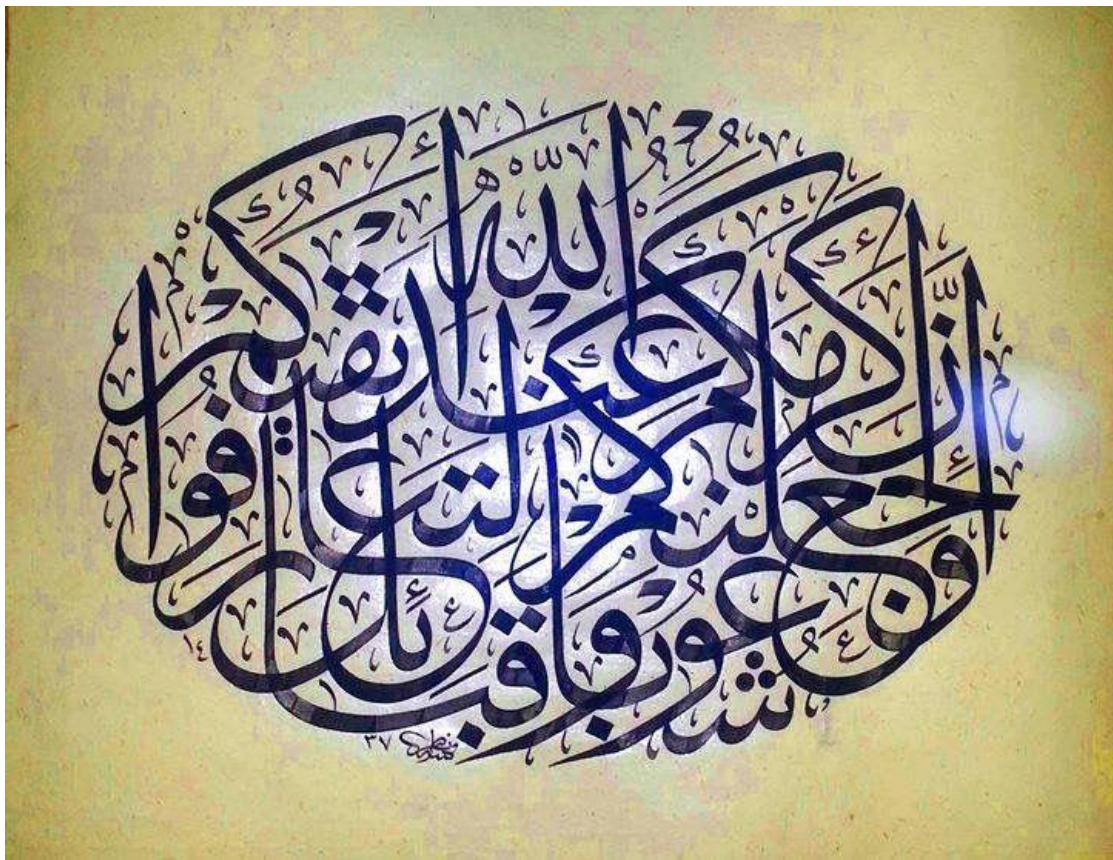 وجعلنٰكم شعوبًا وقبائل لتعارفوا
إنّ أكرمكم عند اللّٰه أتقىٰكم
١٤٣٧